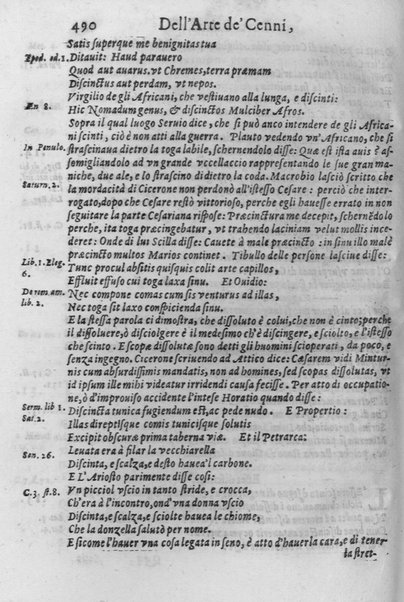 490 Dell'Arte de' Cenni,
Satis superque me benignitas tua
Epod. od.1. Ditauit: Haud parauero
Quod aut auarus, vt Chremes, terra præmam
Discinctus aut perdam, vt nepos.
Virgilio de gli Africani, che vestiuano alla lunga, e discinti:
En 8. Hic Nomadum genus, & discinctos Mulciber Afros.
Sopra il qual luogo Seruio dice, che si può anco intendere de gli Africa-
ni scinti, ciò è non atti alla guerra. Plauto vedendo vn'Africano, che si
In Penulo. strascinaua dietro la toga labile, schernendolo disse: Quæ est ista auis è as-
somigliandolo ad vn grande vccellaccio rappresentando le sue gran ma-
niche, due ale, e lo strascino di dietro la coda. Macrobio lasciò scritto che
Saturn. 2. la mordacità di Cicerone non perdonò all'istesso Cesare: perciò che inter-
rogato, dopo che Cesare restò vittorioso, perche egli hauesse errato in non
seguitare la parte Cesariana rispose: Præcinctura me decepit, schernēdolo
perche, ita toga præcingebatur, vt trahendo laciniam velut mollis ince-
deret: Onde di lui Scilla disse: Cauete à male præcincto: in sinu illo malè
præcincto multos Marios contineri. Tibullo delle persone lasciue disse:
Lib. 1. Eleg. Tunc procul absitis quisquis colit arte capillos,
6. Effluit effuso cui toga laxa sinu. Et Ouidio:
De rem. am. Nec compone comas cum sis venturus ad illas,
lib. 2. Nec toga sit laxo conspicienda sinu.
E la stessa parola ci dimostra, che dissoluto è colui, che non è cinto; perche
il dissoluere, ò disciolgere è il medesimo ch'è discingere, e sciolto, e l'istesso
che scinto. E scopæ dissolutæ sono detti gli huomini scioperati, da poco, e
senza ingegno. Cicerone scriuendo ad Attico dice: Cæsarem vidi Mintur-
nis cum absurdissimis mandatis, non ad homines, sed scopas dissolutas, vt
id ipsum ille mihi videatur irridendi causa fecisse. Per atto di occupatio-
ne, ò d'improuiso accidente l'intese Horatio quando disse:
Serm. lib 1. Discincta tunica fugiendum est, ac pede nudo. E Propertio:
Sat. 2. Illas direptisque comis tunicisque solutis
Excipit obscuræ prima taberna viæ. Et il Petrarca:
Son. 26. Leuata era à filar la vecchiarella
Discinta, e scalza, e desto hauea'l carbone.
E L'Ariosto parimente disse così:
C. 3. st. 8. Vn picciol vscio in tanto stride, e crocca,
Ch'era à l'incontro, ond'vna donna vscìo
Discinta, e scalza, e sciolte hauea le chiome,
Che la donzella salutò per nome.
E si come l'hauer vna cosa legata in seno, è atto d'hauerla cara, e di tener-
la stret-